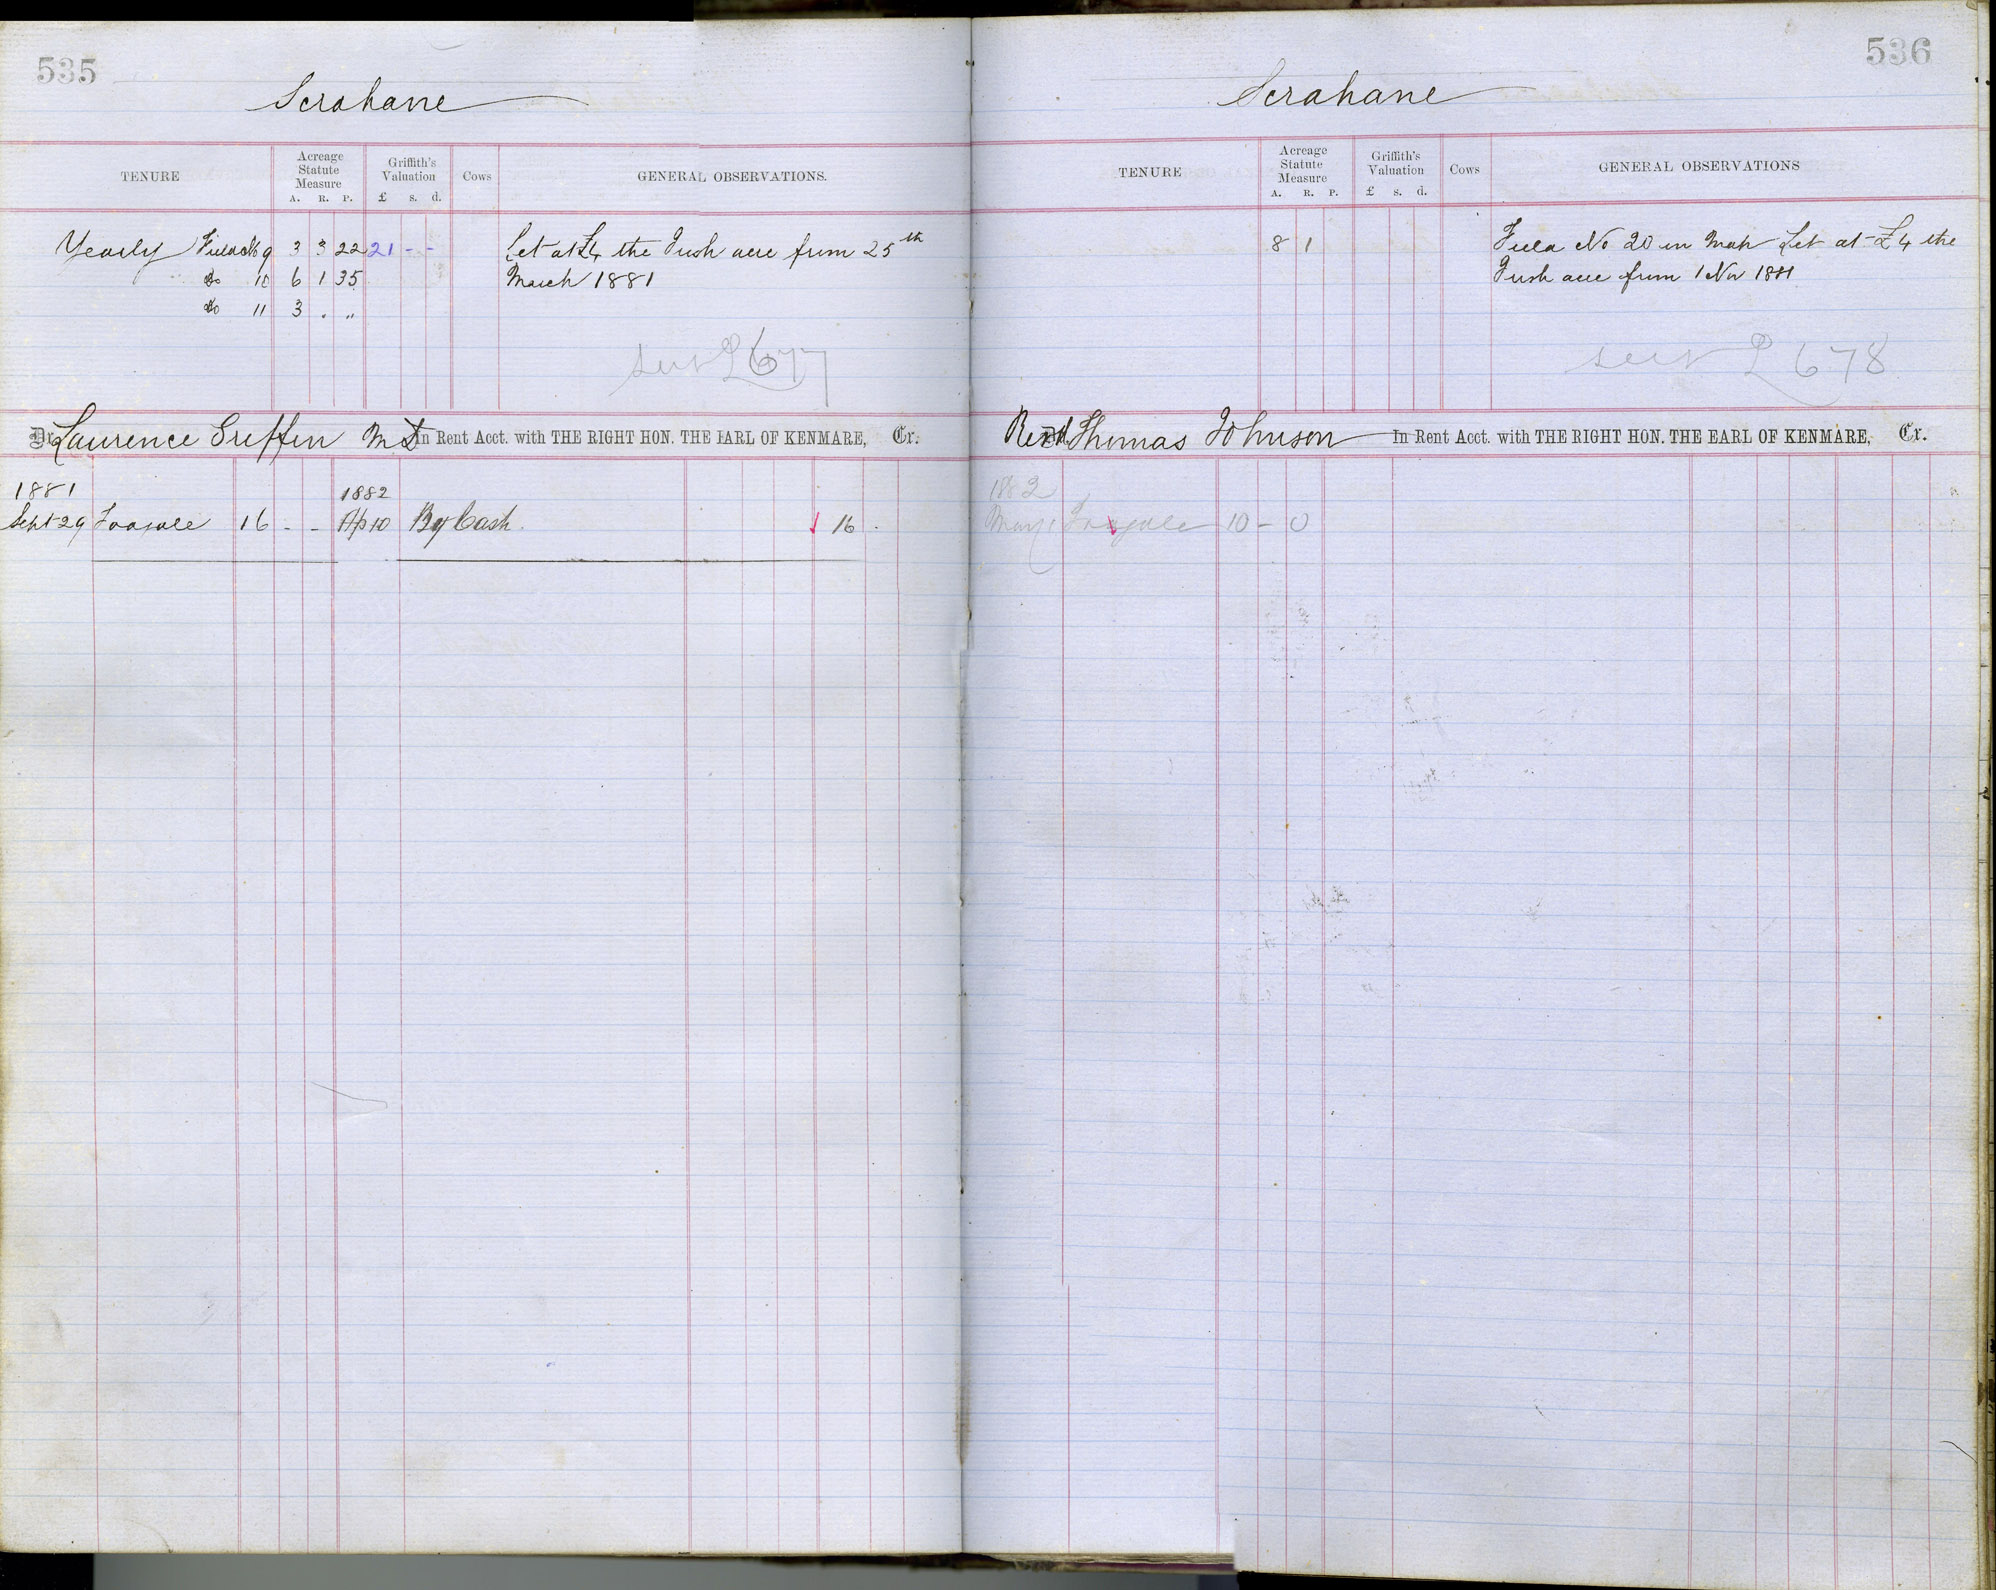 535
Scrahane
TENURE
Acreage
Statute
Measure
A. R. P.
Griffith's
Valuation
£ s. d.
Cows
GENERAL OBSERVATIONS.
Yearly Field No 9 3 3 22 21 - - Let at £4 the Irish acre from 25th
Do 10 6 1 35 March 1881
Do 11 3 . "
677
Dr. Laurence Griffin M D In Rent Acct. with THE RIGHT HON. THE EARL OF KENMARE, Cr.
1881 1882
Sept 29 To a gale 16 - - Ap 10 By Cash 16 .
536
Scrahane
TENURE
Acreage
Statute
Measure
A. R. P.
Griffith's
Valuation
£ s. d.
Cows
GENERAL OBSERVATIONS
8 1 Field No 20 in Map Let at £4 the
Irish acre from 1 Nov 1881
678
Revd Thomas Johnson In Rent Acct. with THE RIGHT HON. THE EARL OF KENMARE, Cr.
1882
May 1 To a gale 10 - 0